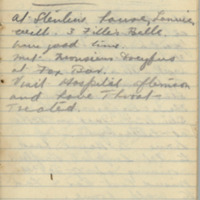 at Stentens, Louvre, Lannier
with 3 Filles Belle
have good time.
met Monsieur Dreyfus
at Fox Bar.
Visit Hospital afternoon
and have Throat
Treated.